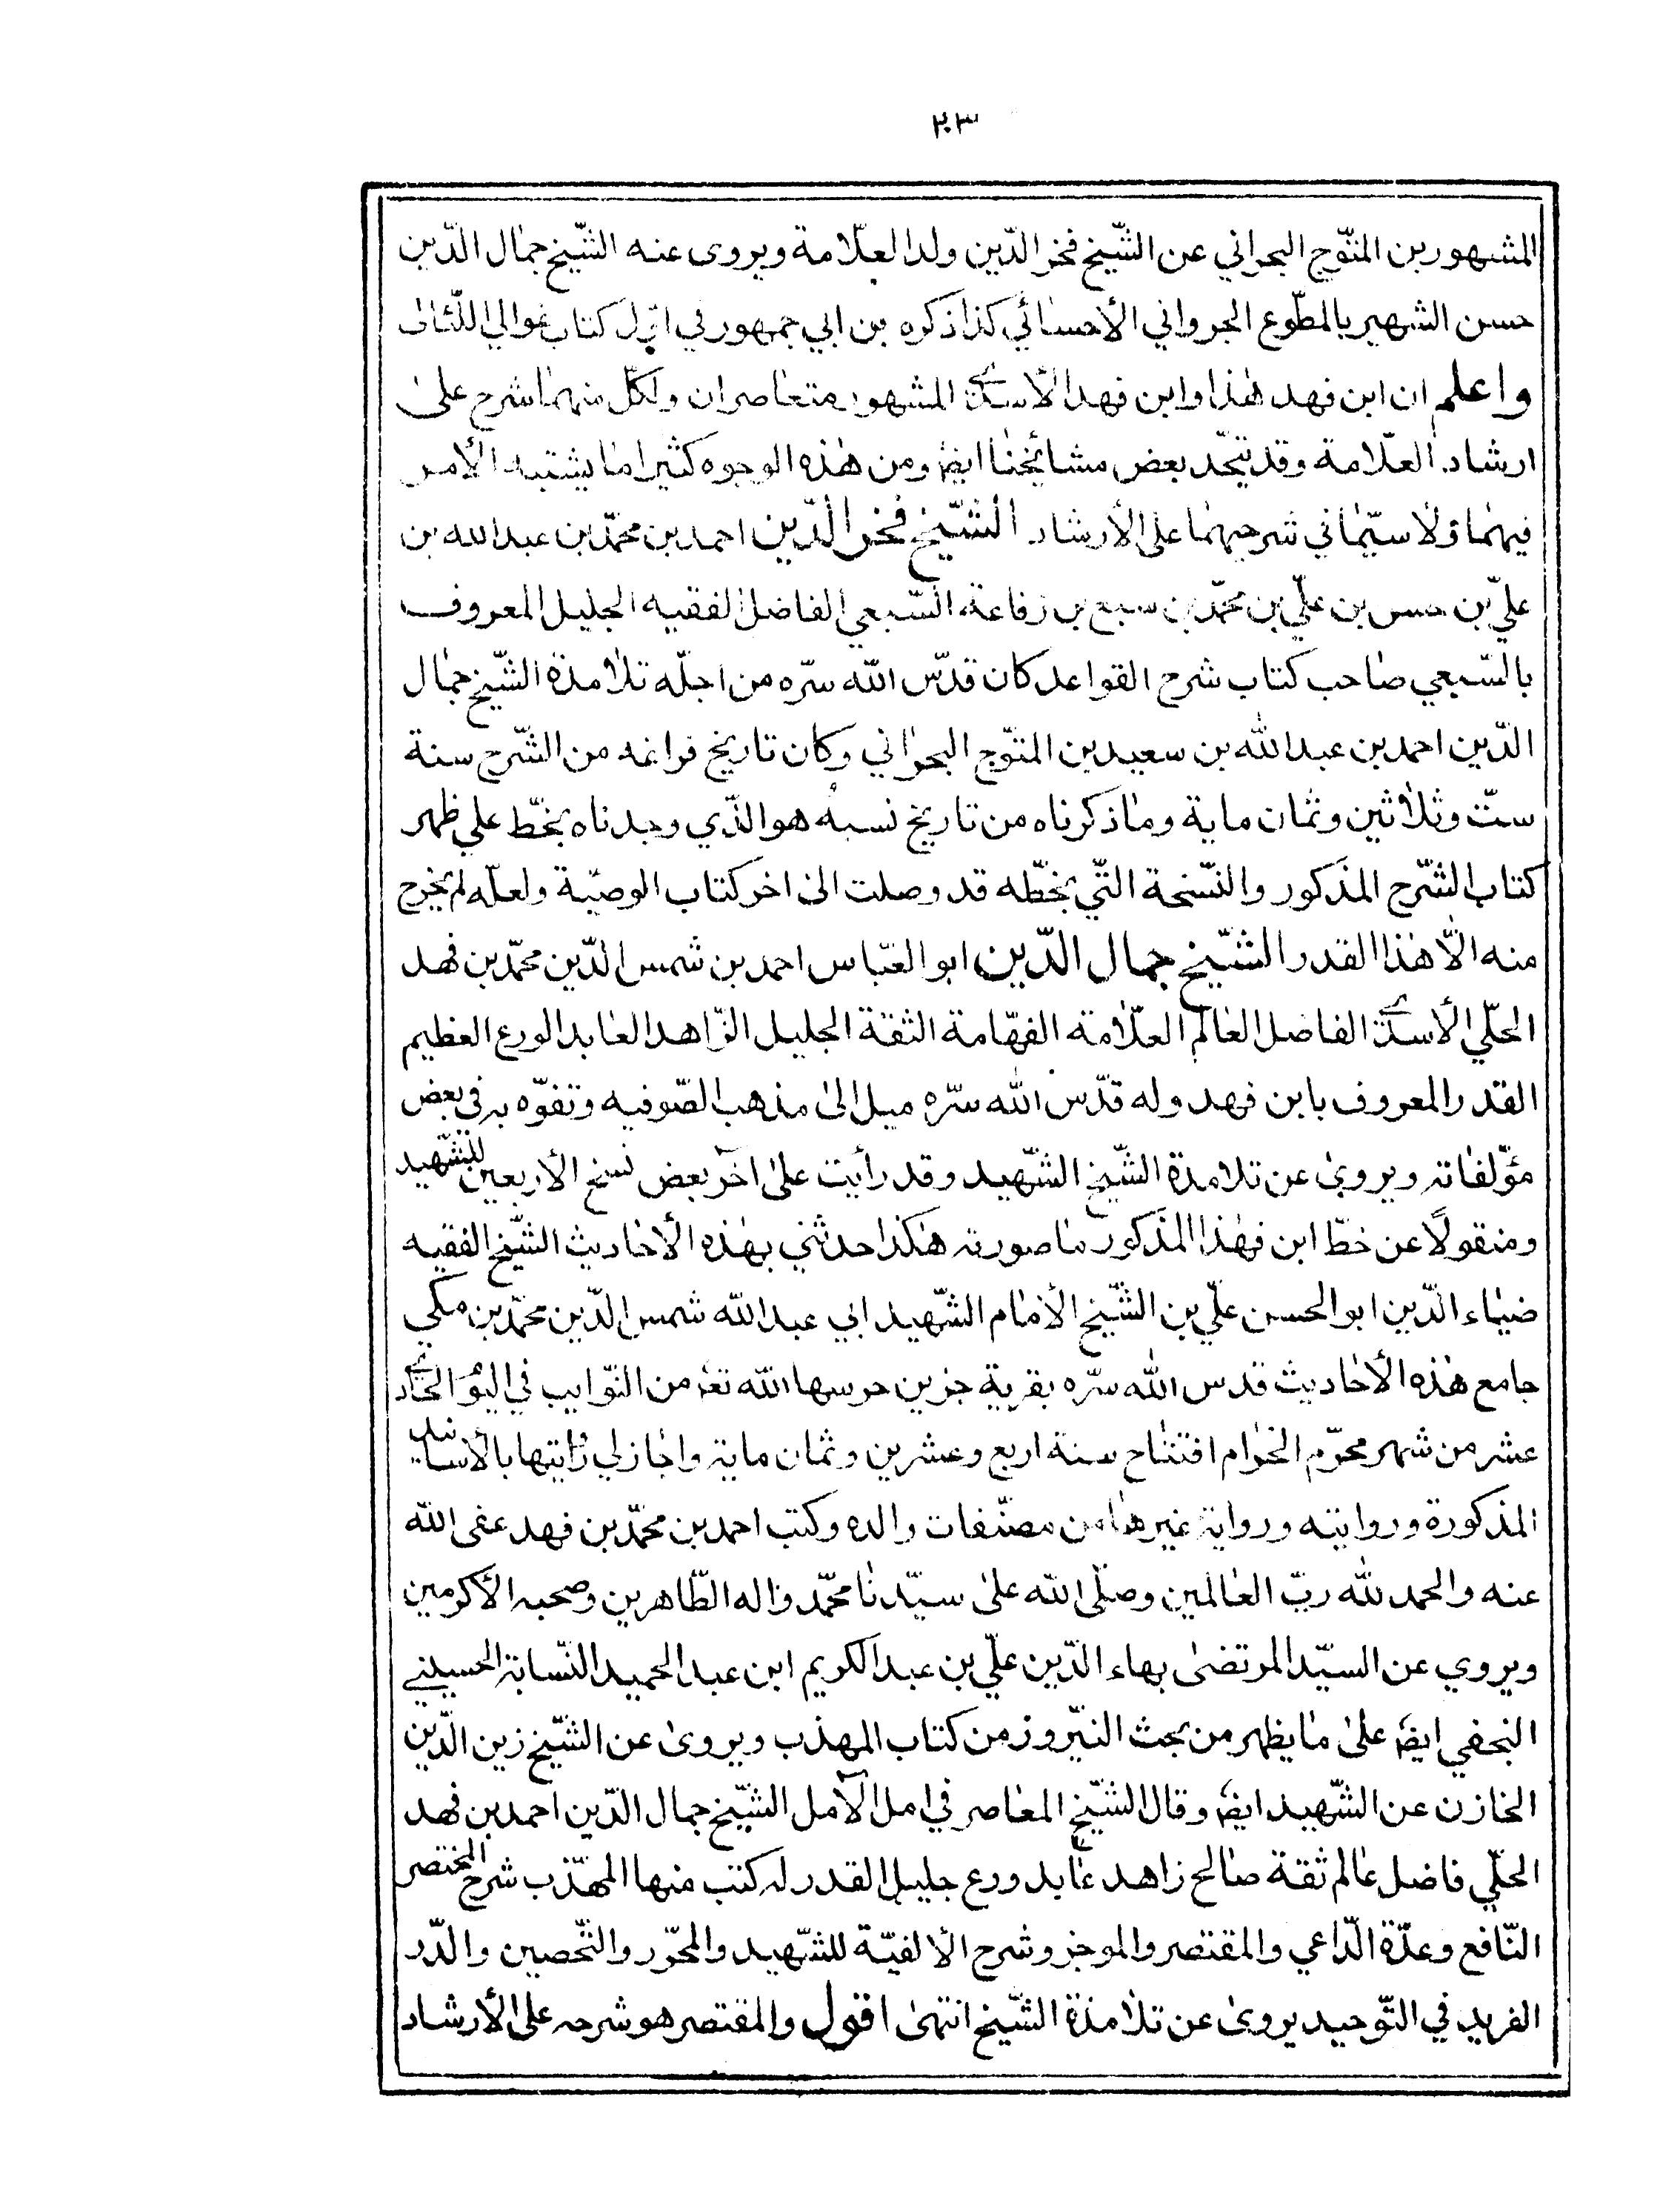 ٢٠٣
المشهور بن المتوّج البحراني عن الشّيخ فخر الدّين ولد العلّامة ويروى عنه الشّيخ جمال الدّين
حسن الشهير بالمطوّع الجرواني الأحسائي كذا ذكره بن ابي جمهور في اوّل كتاب غوالي اللّئالى
واعلم ان ابن فهد هذا وابن فهد الأسدي المشهور متعاصران ولكلّ منهما شرح على
ارشاد العلّامة وقد يتّحد بعض مشائخنا ايضا ومن هذه الوجوه كثيرا ما يشتبه الأمر
فيهما ولا سيّما في شرحيهما على الأرشاد الشّيخ فخر الدّين احمد بن محمّد بن عبد الله بن
عليّ بن حسن بن عليّ بن محمّد بن سبع بن رفاعة السّبعي الفاضل الفقيه الجليل المعروف
بالسّبعي صاحب كتاب شرح القواعد كان قدّس الله سرّه من اجلّه تلامذة الشّيخ جمال
الدّين احمد بن عبد الله بن سعيد بن المتوّج البحراني وكان تاريخ فراغه من الشّرح سنة
ستّ وثلاثين وثمان ماية وما ذكرناه من تاريخ نسبه هو الذّي وجدناه بخطّ علي ظهر
كتاب الشّرح المذكور والنّسخة التّي بخطّه قد وصلت الى اخر كتاب الوصيّة ولعلّه لم يخرج
منه الّا هذا القدر الشّيخ جمال الدّين ابو العبّاس احمد بن شمس الدّين محمّد بن فهد
الحلّي الأسدي الفاضل العالم العلّامة الفهّامة الثقة الجليل الزّاهد العابد الورع العظيم
القدر المعروف بابن فهد وله قدّس الله سرّه ميل الى مذهب الصّوفيه وتفوّه به في بعض
مؤلّفاته ويروى عن تلامذة الشّيخ الشّهيد وقد رأيت على اخر بعض نسخ الأربعين للشّهيد
ومنقولًا عن خطّ ابن فهد هذا المذكور ما صورته هكذا حدثني بهذه الأحاديث الشّيخ الفقيه
ضياء الدّين ابو الحسن عليّ بن الشّيخ الأمام الشّهيد ابي عبد الله شمس الدّين محمّد بن مكي
جامع هذه الأحاديث قدس الله سرّه بقرية جزين حرسها الله تع من النّوايب في اليوم الحادي
عشر من شهر محرّم الحرام افتتاح سنة اربع وعشرين وثمان ماية واجاز لي روايتها بالأسانيد
المذكورة وروايته ورواية غيرها من مصنّفات والده وكتب احمد بن محمّد بن فهد عفى الله
عنه والحمد لله ربّ العالمين وصلّى الله على سيّدنا محمّد واله الطّاهرين وصحبه الأكرمين
ويروي عن السيّد المرتضى بهاء الدّين عليّ بن عبد الكريم ابن عبد الحميد النّسابة الحسيني
النجفي ايضا على ما يظهر من بحث النيّروز من كتاب المهذب ويروى عن الشّيخ زين الدّين
الخازن عن الشّهيد ايضا وقال الشّيخ المعاصر في امل الآمل الشّيخ جمال الدّين احمد بن فهد
الحلّي فاضل عالم ثقة صالح زاهد عابد ورع جليل القدر له كتب منها المهذّب شرح المختصر
النّافع وعدّة الدّاعي والمقتصر والموجز وشرح الألفيّة للشّهيد والمحرّر والتّحصين والدّر
الفريد في التّوحيد يروى عن تلامذة الشّيخ انتهى اقول والمقتصر هو شرحه على الأرشاد